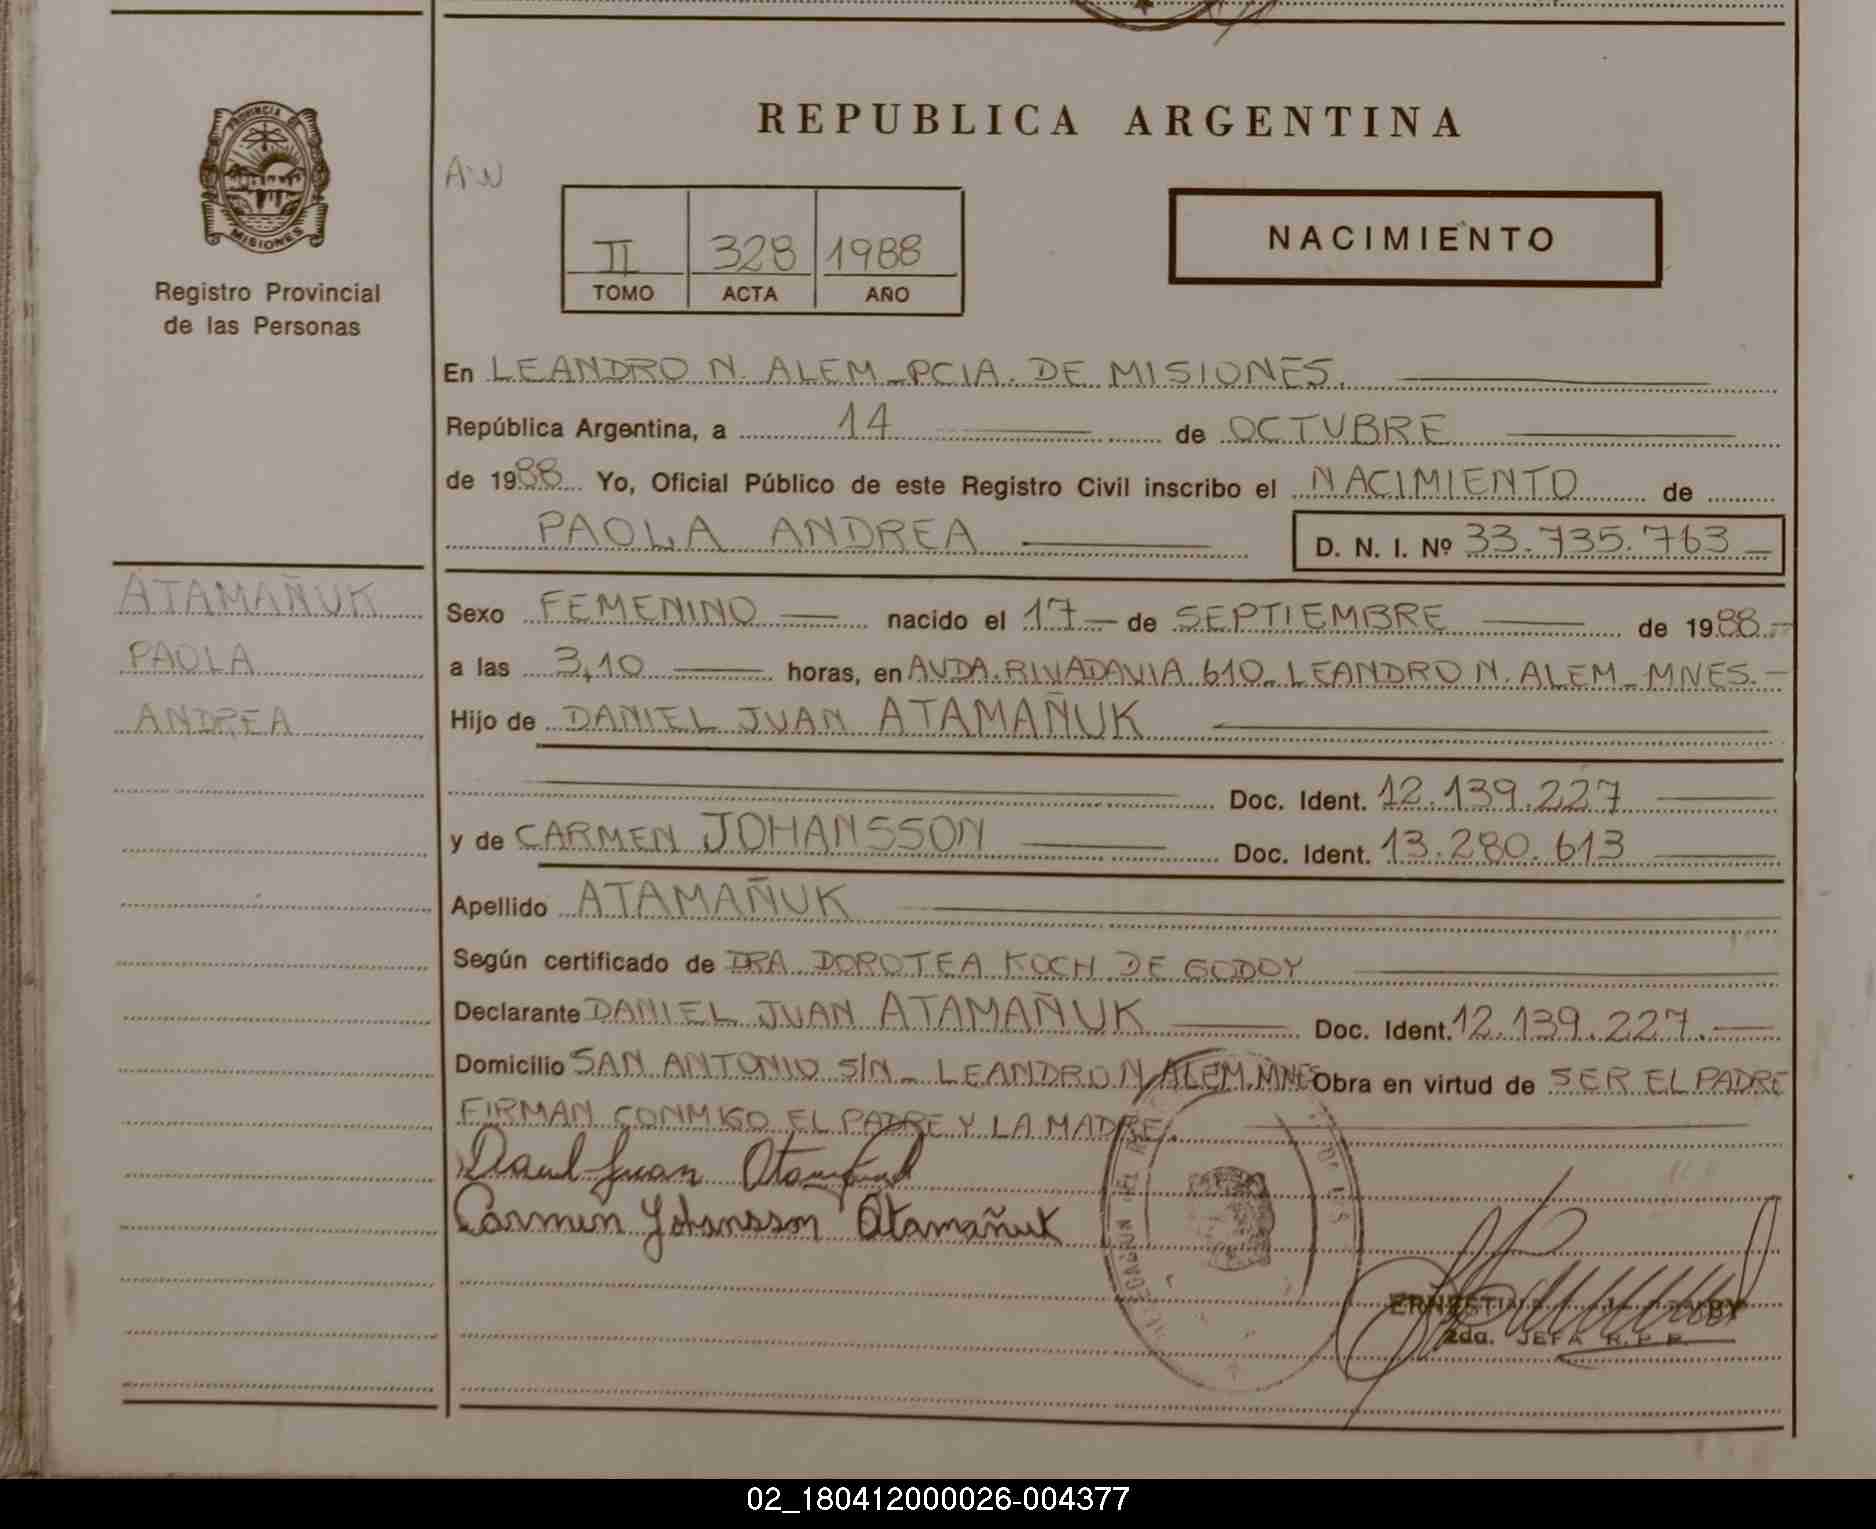 PROVINCIA DE
MISIONES
Registro Provincial
de las Personas
ATAMAÑUK
PAOLA
ANDREA
REPUBLICA ARGENTINA
II 328 1988
TOMO ACTA AÑO
NACIMIENTO
En LEANDRO N. ALEM - PCIA. DE MISIONES.
República Argentina, a 14 de OCTUBRE
de 1988 Yo, Oficial Público de este Registro Civil inscribo el NACIMIENTO de
PAOLA ANDREA D. N. I. Nº 33.735.763
Sexo FEMENINO nacido el 17 de SEPTIEMBRE de 1988
a las 3,10 horas, en AVDA. RIVADAVIA 610 - LEANDRO N. ALEM - MNES. -
Hijo de DANIEL JUAN ATAMAÑUK
Doc. Ident. 12.139.227
y de CARMEN JOHANSSON Doc. Ident. 13.280.613
Apellido ATAMAÑUK
Según certificado de DRA DOROTEA KOCH DE GODOY
Declarante DANIEL JUAN ATAMAÑUK Doc. Ident. 12.139.227.
Domicilio SAN ANTONIO S/N - LEANDRO N ALEM. MNES Obra en virtud de SER EL PADRE
FIRMAN CONMIGO EL PADRE Y LA MADRE.
Daniel Juan
Carmen Johansson Atamañuk
2da. JEFA R. P. P.
02_180412000026-004377